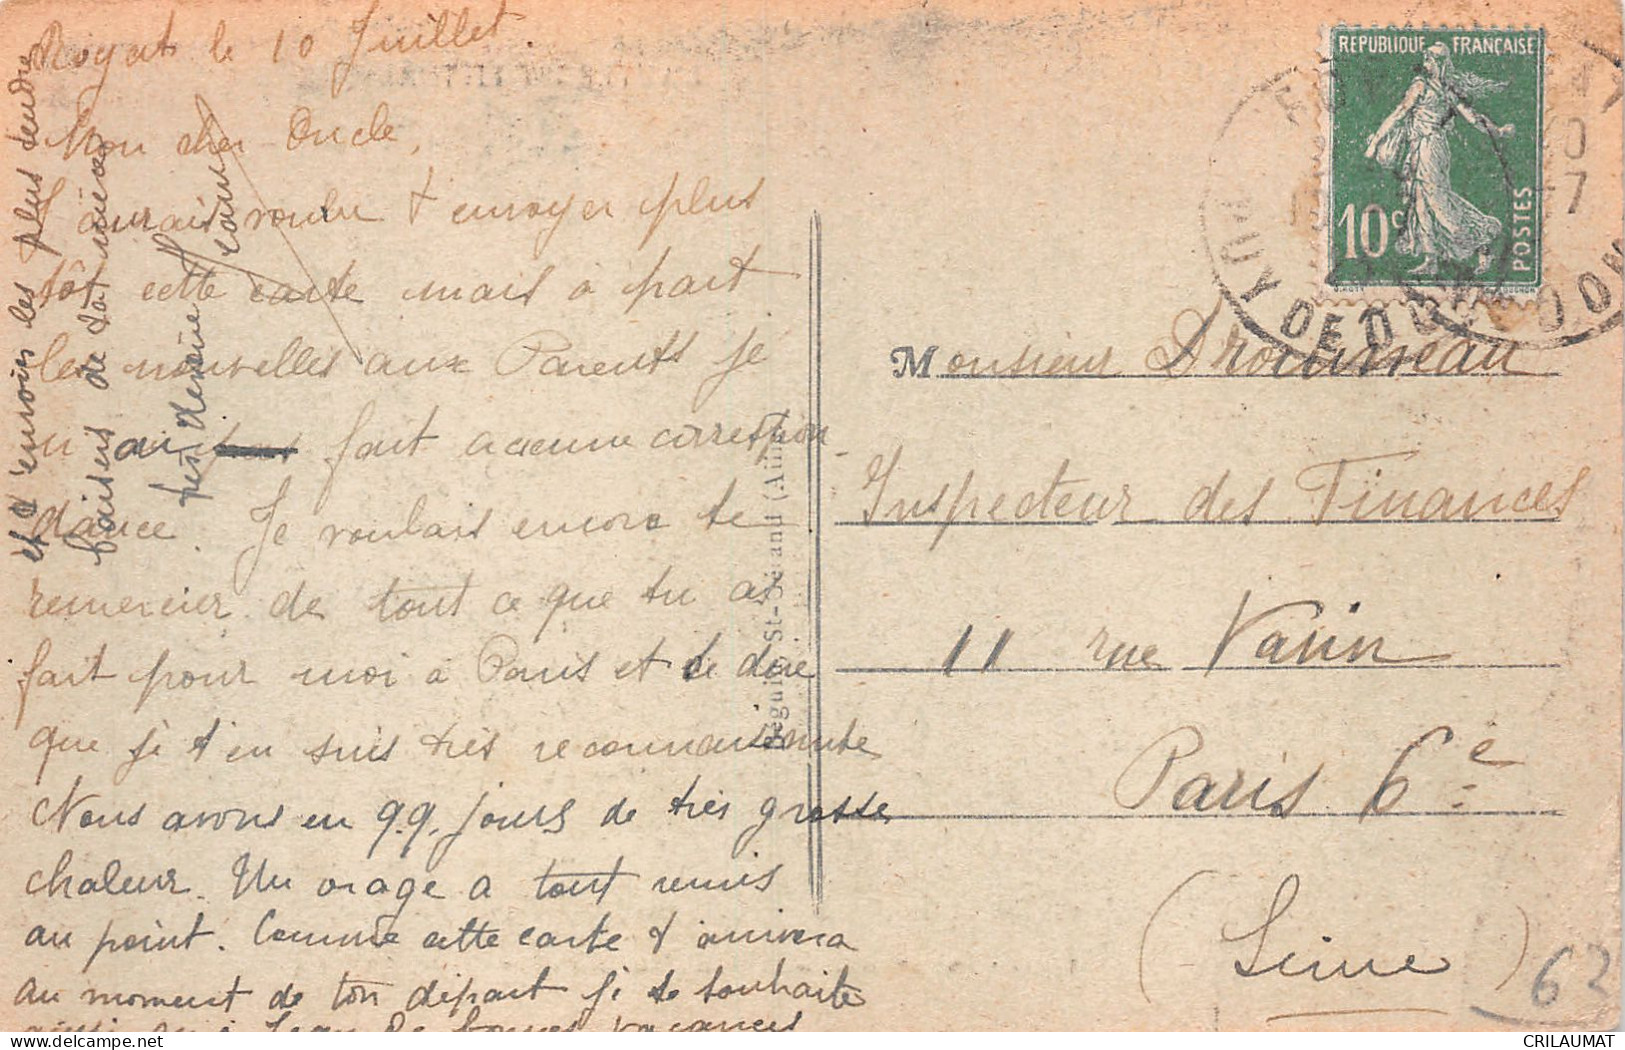 Royat le 10 Juillet.
Mon cher Oncle,
J'aurais voulu t'envoyer plus
tôt cette carte mais à part
les nouvelles aux Parents je
n'ai pas fait aucune correspon
dance. Je voulais encore te
remercier de tout ce que tu as
fait pour moi à Paris et te dire
que je t'en suis très reconnaissante
Nous avons eu qq. jours de très grosse
chaleur. Un orage a tout remis
au point. Comme cette carte t'arrivera
au moment de ton départ je te souhaite
ainsi qu'à Jean de bonnes vacances
et t'envoie les plus tendres
baisers de ta nièce
REPUBLIQUE FRANÇAISE
10c
POSTES
PUY DE DOME
Monsieur Drouineau
Inspecteur des Finances
11 rue Vavin
Paris 6e
(Seine)
62
CRILAUMAT